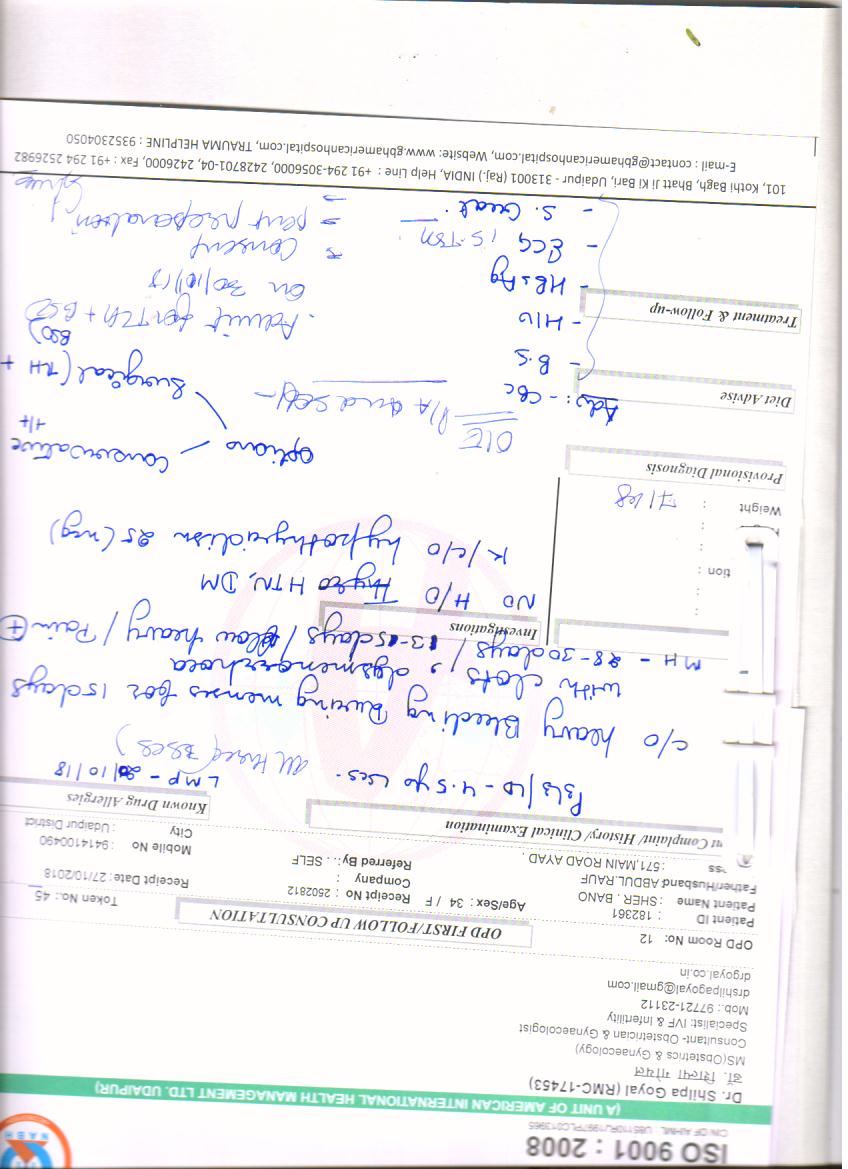 ISO 9001 : 2008
CIN OF AIHML U85110RJ1997PLC013965
NABH
(A UNIT OF AMERICAN INTERNATIONAL HEALTH MANAGEMENT LTD. UDAIPUR)
Dr. Shilpa Goyal (RMC-17453)
डॉ. शिल्पा गोयल
MS(Obstetrics & Gynaecology)
Consultant- Obstetrician & Gynaecologist
Specialist: IVF & Infertility
Mob.: 97721-23112
drshilpagoyal@gmail.com
drgoyal.co.in
OPD Room No: 12
OPD FIRST/FOLLOW UP CONSULTATION
Token No.: 45
Patient ID : 182361
Receipt No : 2502812
Receipt Date : 27/10/2018
Patient Name : SHER . BANO
Age/Sex : 34 / F
Company :
Mobile No : 9414100490
Father/Husband ABDUL RAUF
Referred By: . SELF
City : Udaipur District
ss :571,MAIN ROAD AYAD .
nt Complaint/ History/ Clinical Examination
Known Drug Allergies
P3L3/LD - 4.5 yo LSCS.
All three LSCS)
LMP - 20/10/18
c/o heavy Bleeding During menses for 15 days
with clots, dysmenorrhoea
MH - 28-30days / 13-15days / flow heavy / Pain (+)
Investigations
NO H/O HTN, DM
K/C/O hypothyroidism 25 (mcg)
tion :
Weight : 71 kg
Provisional Diagnosis
options
Conservative
Surgical (TLH + BSO)
O/E
P/A
Adv:- CBC
Diet Advise
- B.S
- HIV
- HBsAg
- ECG, S.TSH
- S. Creat.
Treatment & Follow-up
. Admit for TLH + BSO
on 30/10/18
Consent
part preparation
101, Kothi Bagh, Bhatt Ji Ki Bari, Udaipur - 313001 (Raj.) INDIA, Help Line : +91 294-3056000, 2428701-04, 2426000, Fax : +91 294 2526982
E-mail : contact@gbhamericanhospital.com, Website: www.gbhamericanhospital.com, TRAUMA HELPLINE : 9352304050